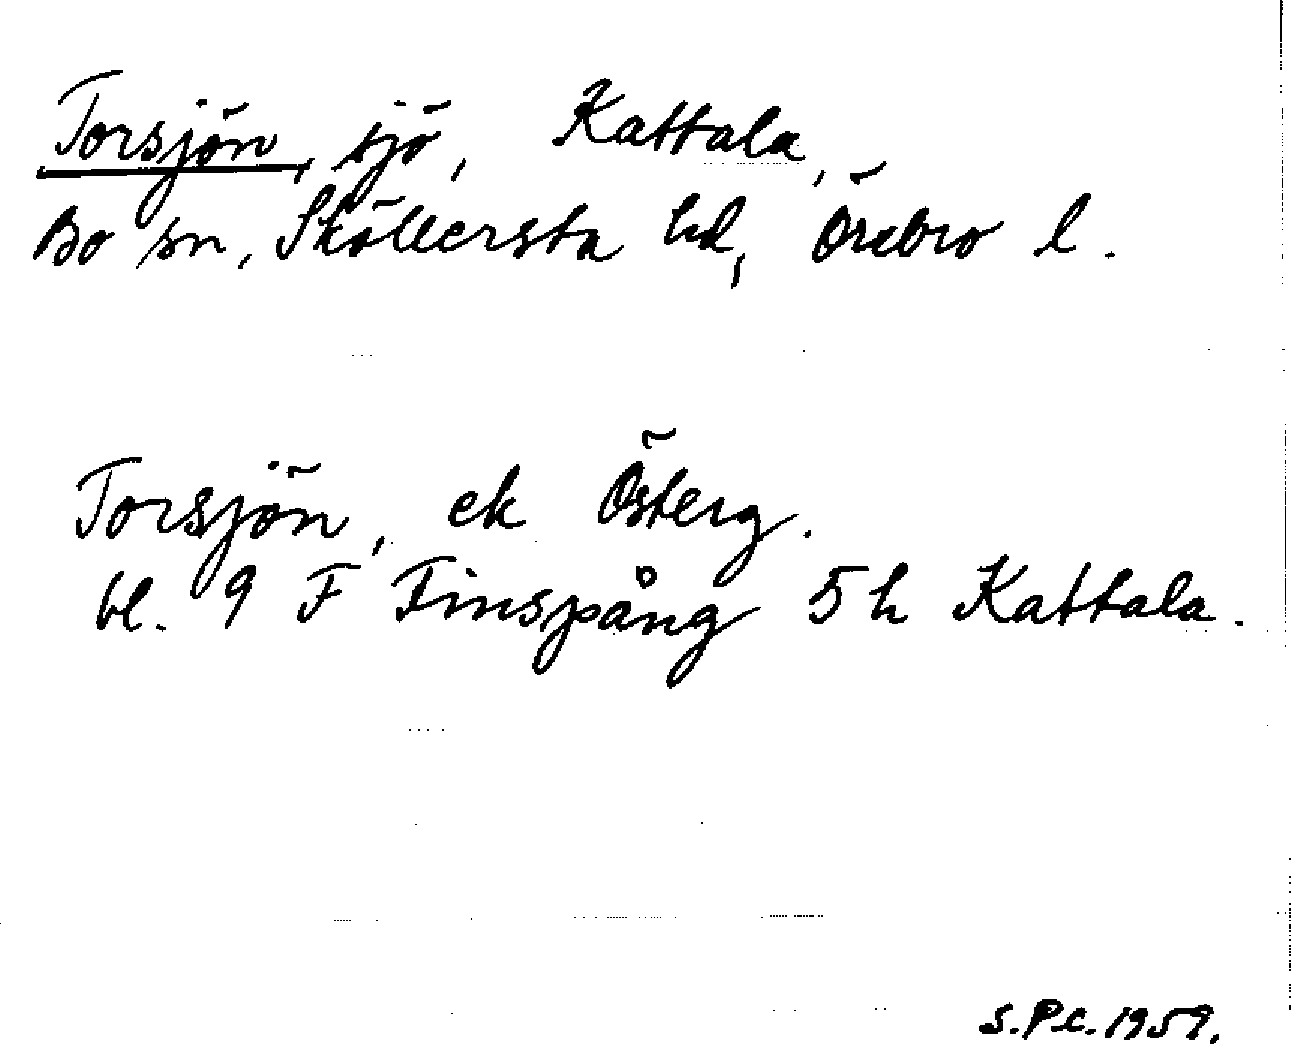 Torsjön, sjö, Kattala,
Bo sn, Sköllersta hd, Örebro l.
Torsjön, ek Österg.
bl. 9 F Finspång 5 h Kattala.
S.P.C. 1959.